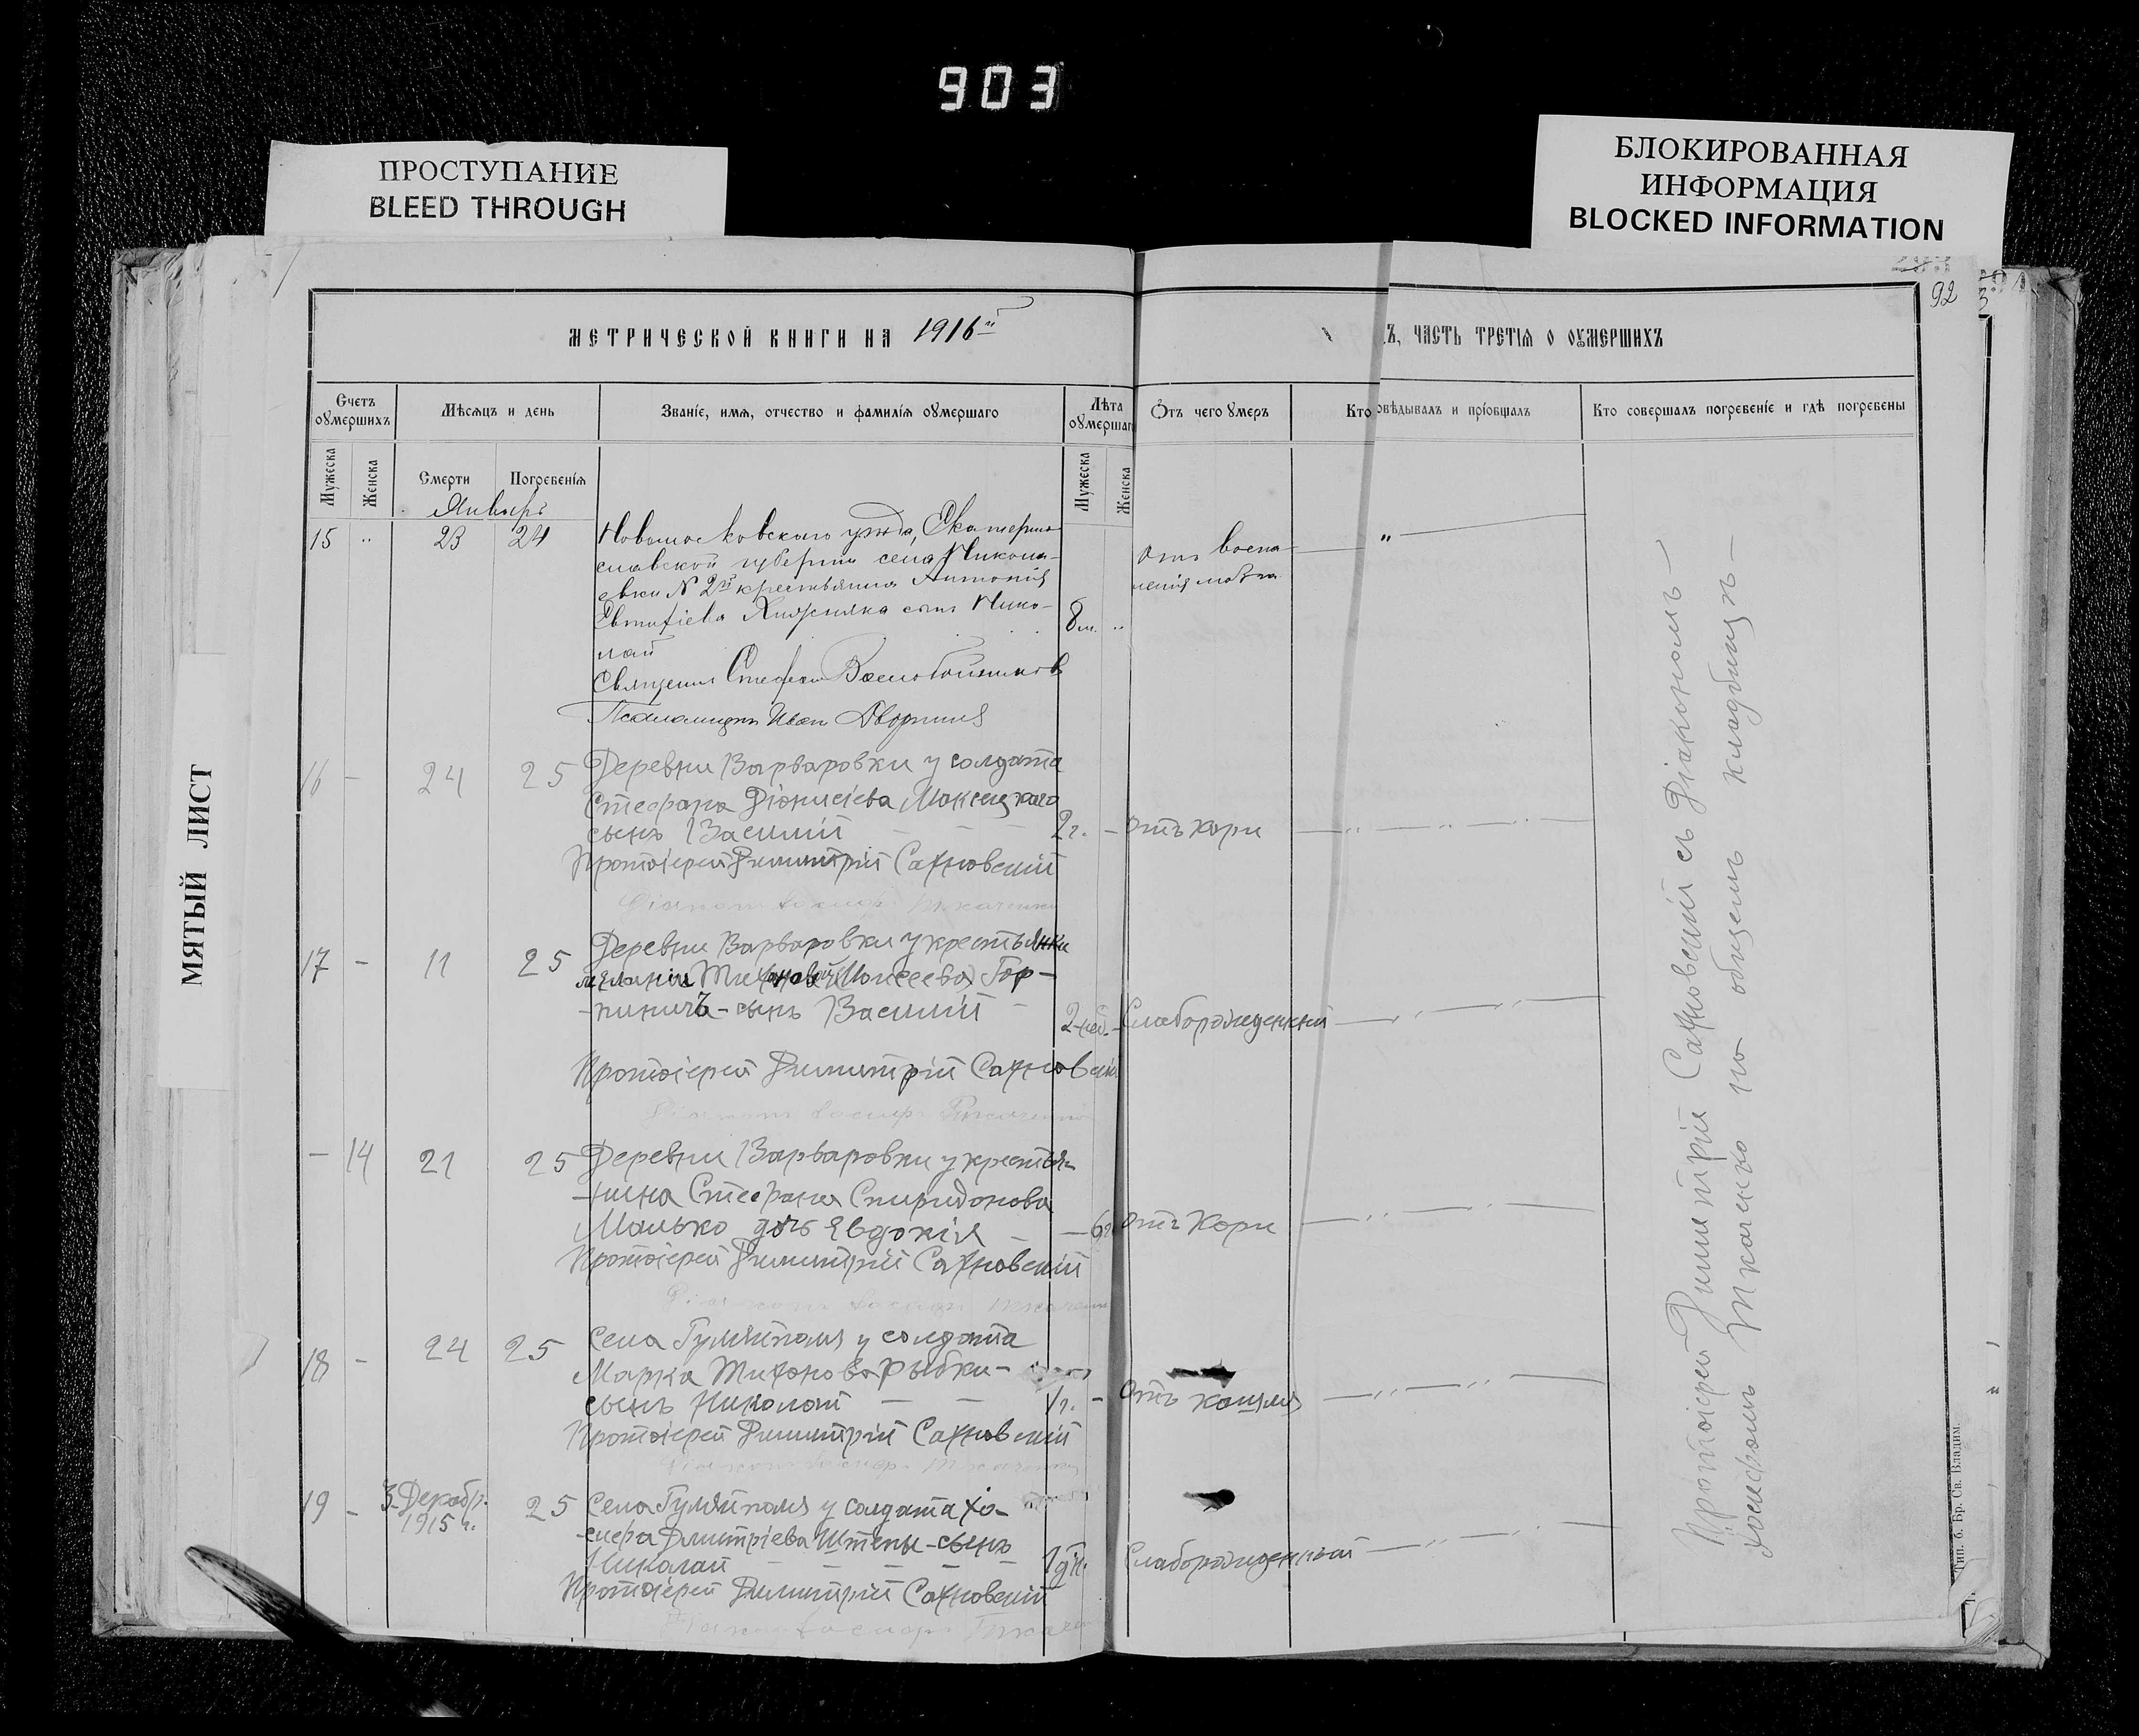 903
ПРОСТУПАНИЕ
BLEED THROUGH
БЛОКИРОВАННАЯ
ИНФОРМАЦИЯ
BLOCKED INFORMATION
МЯТЫЙ ЛИСТ
92
МЕТРИЧЕСКОЙ КНИГИ НА 1916й
Ъ, ЧАСТЬ ТРЕТІЯ О ОУМЕРШИХЪ
Счетъ оумершихъ
Мѣсяцъ и день
Званіе, имя, отчество и фамилія оумершаго
Лѣта оумершаг
Отъ чего умеръ
Кто овѣдывалъ и пріобщалъ
Кто совершалъ погребеніе и гдѣ погребены
Мужеска
Женска
Смерти
Погребенія
Мужеска
Женска
Январь
15 " 23 24 Новомосковскаго уѣзда, Екатерино
славской губерніи села Никола-
евки N 2й крестьянина Антонія
Евтихіева Хижняка сынъ Нико-
лай
8 м. "
Отъ воспа
ленія мозга
"
Священникъ Стефанъ Воскобойниковъ
Псаломщикъ Иванъ
16 - 24 25 Деревни Варваровки у солдата
Стефана Діонисіева
сынъ Василій - - - 2 г. - отъ кори
Протоіерей Димитрій Сахновскій
Діаконъ Іосифъ Ткаченко
17 - 11 25 Деревни Варваровки у крестьянки
Моисеевой Гор-
-сынъ Василій - 2 нед. - Слаборожденный
Протоіерей Димитрій Сахновскій
Діаконъ Іосифъ Ткаченко
- 14 21 25 Деревни Варваровки у крестья-
-нина Стефана Спиридонова
Малько дочь Евдокія - - 6 г. отъ Кори
Протоіерей Димитрій Сахновскій
Діаконъ Іосифъ Ткаченко
18 - 24 25 Села Гуляйполя у солдата
Марка Тихонова Рыбки-
сынъ Николай - - 1 г. - Отъ кашля
Протоіерей Димитрій Сахновскій
Діаконъ Іосифъ Ткаченко
19 - 3 Декабр. 1915 г. 25 Села Гуляйполя у солдата Іо-
-сифа Димитріева Штепы - сынъ
Николай - - - 1 дн. Слаборожденный
Протоіерей Димитрій Сахновскій
Діаконъ Іосифъ Ткачен
Протоіерей Димитрій Сахновскій съ Діакономъ -
Іосифомъ Ткаченко на общемъ кладбищѣ -
Тип. б. Бр. Св. Владим.